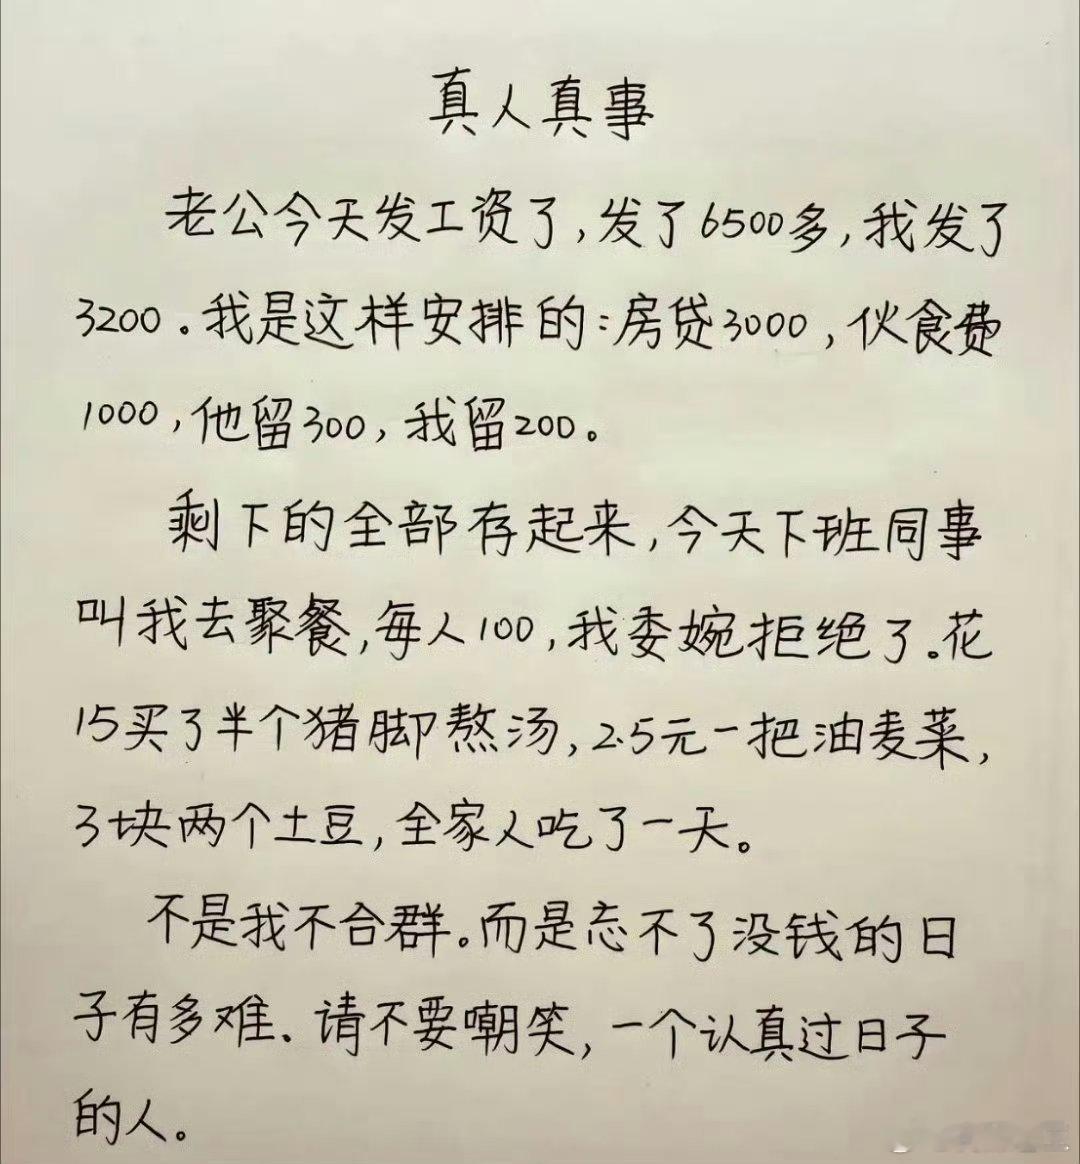 真人真事
老公今天发工资了,发了6500多,我发了
3200。我是这样安排的:房贷3000,伙食费
1000,他留300,我留200。
剩下的全部存起来,今天下班同事
叫我去聚餐,每人100,我委婉拒绝了。花
15买了半个猪脚熬汤,2.5元一把油麦菜,
3块两个土豆,全家人吃了一天。
不是我不合群。而是忘不了没钱的日
子有多难.请不要嘲笑,一个认真过日子
的人。